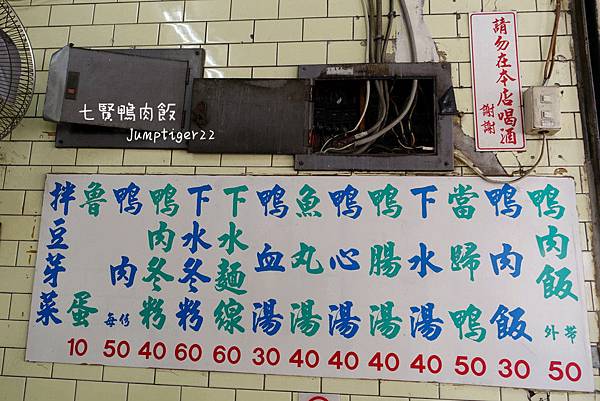 七賢鴨肉飯
Jumptiger22
請勿在本店喝酒
謝謝
鴨肉飯 外帶 50
鴨肉飯 30
當歸鴨 50
下水湯 40
鴨腸湯 40
鴨心湯 40
魚丸湯 40
鴨血湯 30
下水麵線 60
下水冬粉 60
鴨肉冬粉 40
鴨肉 每份 50
魯蛋 10
拌豆芽菜